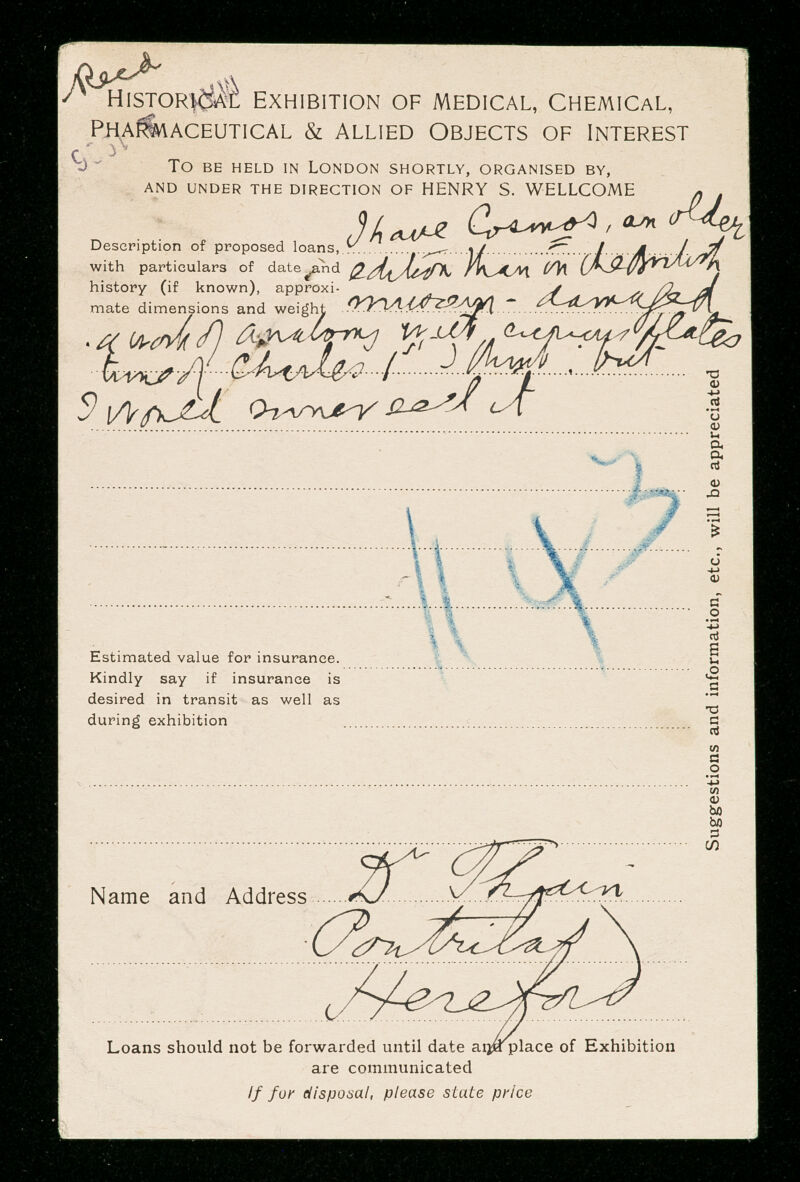 Recd
HISTORICAL EXHIBITION OF MEDICAL, CHEMICAL,
PHARMACEUTICAL & ALLIED OBJECTS OF INTEREST
TO BE HELD IN LONDON SHORTLY, ORGANISED BY,
AND UNDER THE DIRECTION OF HENRY S. WELLCOME
Description of proposed loans,
with particulars of date and
history (if known), approxi-
mate dimensions and weight
I have Cosmos, an older
edition than in the British
museum - damaged
a work of anatomy with copious plates
time of Charles 1st I think. but
I would sooner sell it
1143
Estimated value for insurance.
Kindly say if insurance is
desired in transit as well as
during exhibition
Suggestions and information, etc., will be appreciated
Name and Address Dr Thain
Pontrilas
Hereford
Loans should not be forwarded until date and place of Exhibition
are communicated
If for disposal, please state price